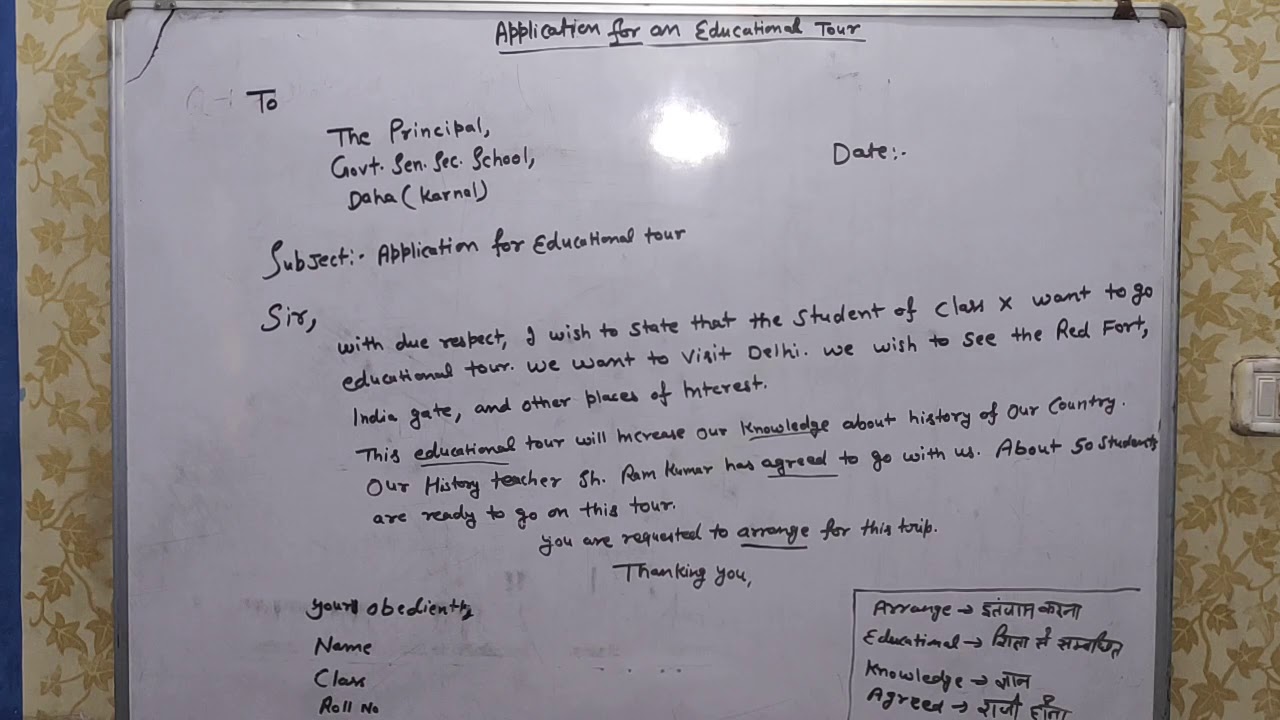 Application for an Educational Tour
To
The Principal,
Govt. Sen. Sec. School,
Daha (Karnal)
Date:-
Subject:- Application for Educational tour
Sir,
with due respect, I wish to state that the student of class X want to go
educational tour. we want to visit Delhi. we wish to see the Red Fort,
India gate, and other places of Interest.
This educational tour will Increase our knowledge about history of our Country.
Our History teacher Sh. Ram Kumar has agreed to go with us. About 50 students
are ready to go on this tour.
you are requested to arrange for this trip.
Thanking you,
yours obediently
Name
Class
Roll No
Arrange → इतंजाम करना
Educational → शिक्षा से सम्बंधित
Knowledge → ज्ञान
Agreed → राजी होना